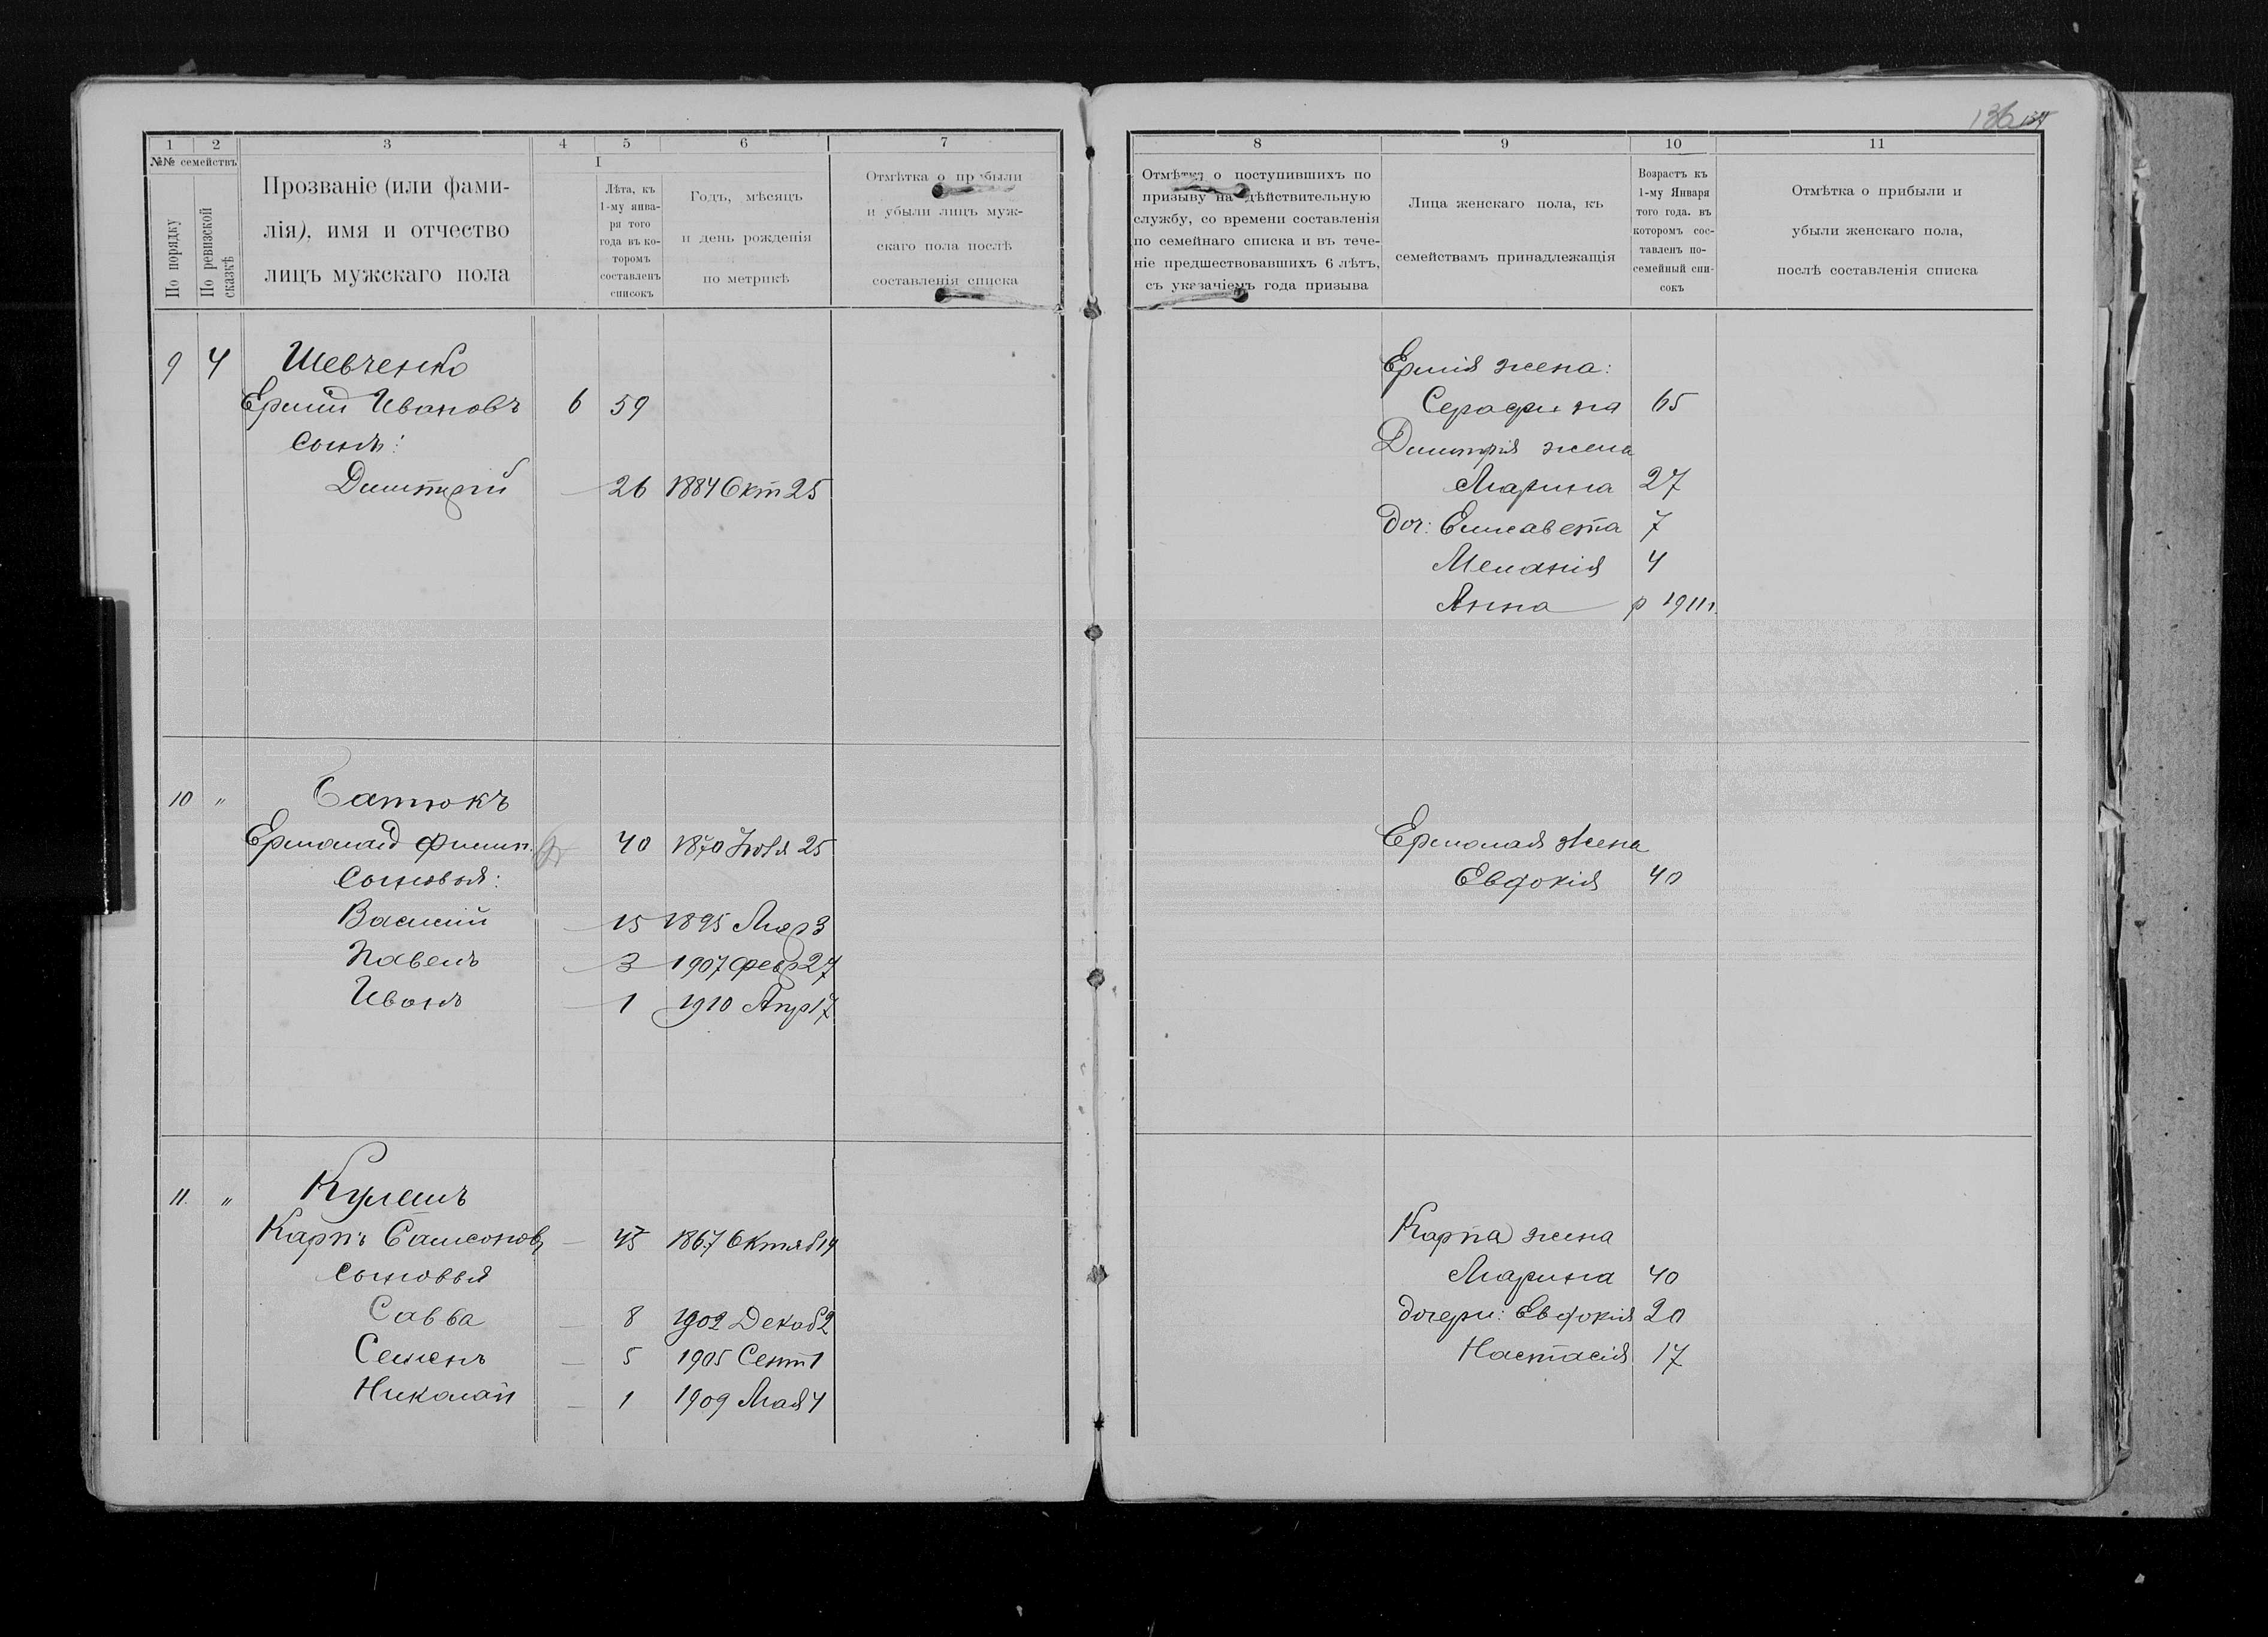 136
1 2 3 4 5 6 7
№№ семействъ
По порядку
По ревизской сказкѣ
Прозваніе (или фами-
лія), имя и отчество
лицъ мужскаго пола
I
Лѣта, къ
1-му янва-
ря того
года въ ко-
торомъ
составленъ
списокъ
Годъ, мѣсяцъ
и день рожденія
по метрикѣ
Отмѣтка о прибыли
и убыли лицъ муж-
скаго пола послѣ
составленія списка
9 4 Шевченко
Ермій Ивановъ 6 59
сынъ:
Димитрій — 26 1884 Окт 25
10 " Сатюкъ
Ермолай Филип. 40 1870 Іюля 25
сыновья:
Василій — 15 1895 Мар 3
Павелъ — 3 1907 Февр 27
Иванъ — 1 1910 Апр 17
11. " Кулешъ
Карпъ Самсоновъ — 43 1867 Октяб 14
сыновья
Савва — 8 1902 Декаб 2
Семенъ — 5 1905 Сент 1
Николай — 1 1909 Мая 4
8 9 10 11
Отмѣтка о поступившихъ по
призыву на дѣйствительную
службу, со времени составленія
по семейнаго списка и въ тече-
ніе предшествовавшихъ 6 лѣтъ,
съ указаніемъ года призыва
Лица женскаго пола, къ
семействамъ принадлежащія
Возрастъ къ
1-му Января
того года. въ
которомъ сос-
тавленъ по-
семейный спи-
сокъ
Отмѣтка о прибыли и
убыли женскаго пола,
послѣ составленія списка
Ермія жена:
Серафима 65
Димитрія жена
Марина 27
доч: Елисавета 7
Меланія 4
Анна р 1911г.
Ермолая жена
Евдокія 40
Карпа жена
Марина 40
дочери: Евдокія 20
Настасія 17